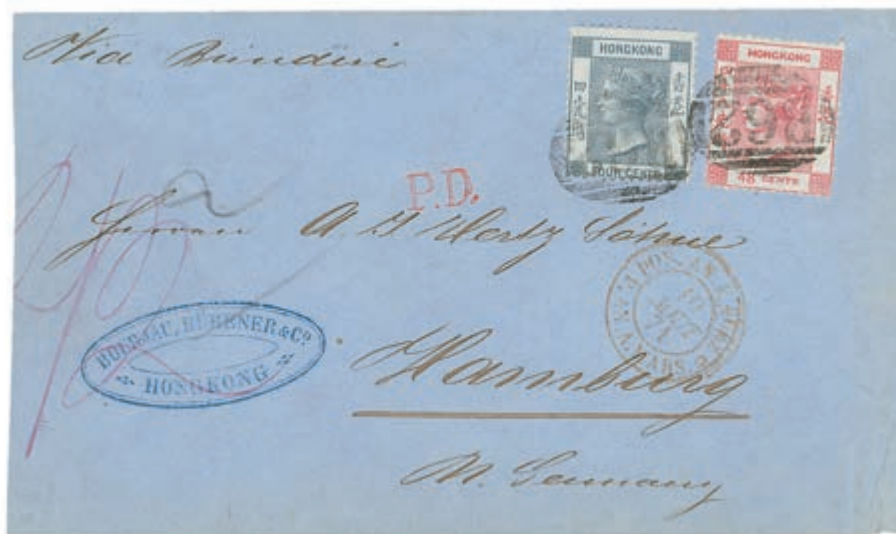 Via Brindisi
HONGKONG
FOUR CENTS
HONGKONG
48 CENTS
P.D.
Herren A. J Hertz Söhne
BOURJAU, HÜBENER & Co.
HONGKONG
Hamburg
N. Germany